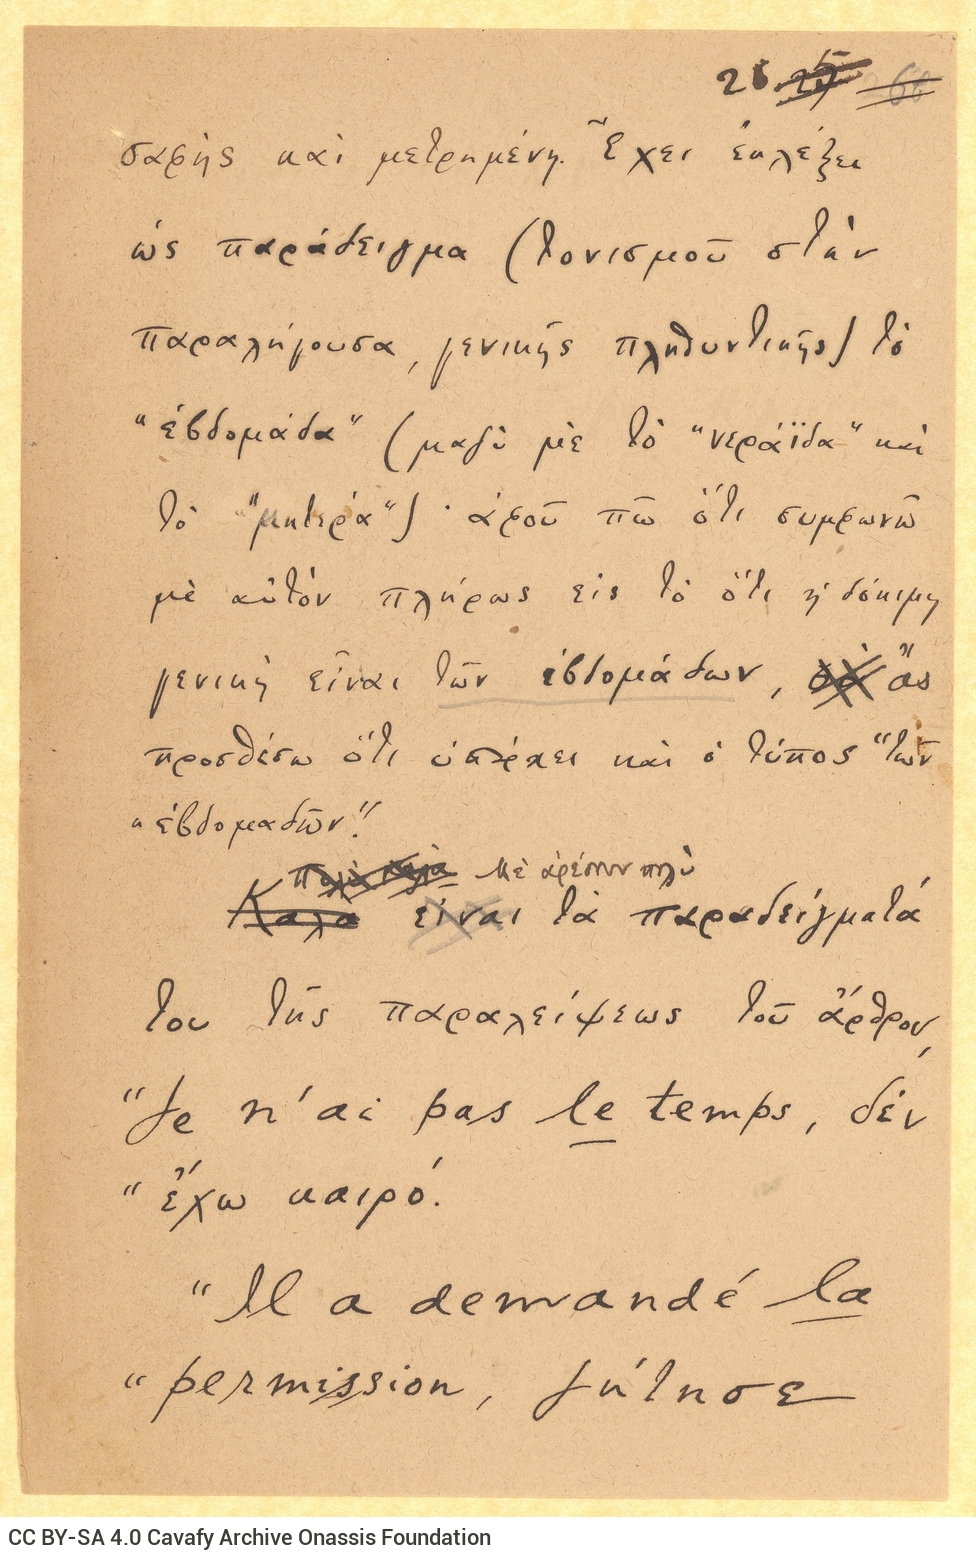 26 27 26
σαφὴς καὶ μετρημένη. Ἔχει ἐκλέξει
ὡς παράδειγμα (τονισμοῦ στὴν
παραλήγουσα, γενικῆς πληθυντικῆς) τὸ
"ἑβδομάδα" (μαζὺ μὲ τὸ "νεράϊδα" καὶ
τὸ "μητέρα")· ἀφοῦ πῶ ὅτι συμφωνῶ
μὲ αὐτὸν πλήρως εἰς τὸ ὅτι ἡ δόκιμη
γενικὴ εἶναι τῶν ἑβδομάδων, ἂς
προσθέσω ὅτι ὑπάρχει καὶ ὁ τύπος "τῶν
"ἑβδομαδῶν".
Πολὺ καλὰ Μὲ ἀρέσουν πολὺ
Καλὰ εἶναι τὰ παραδείγματά
του τῆς παραλείψεως τοῦ ἄρθρου,
"Je n'ai pas le temps, δέν
"ἔχω καιρό.
"Il a demandé la
"permission, ζήτησε
CC BY-SA 4.0 Cavafy Archive Onassis Foundation